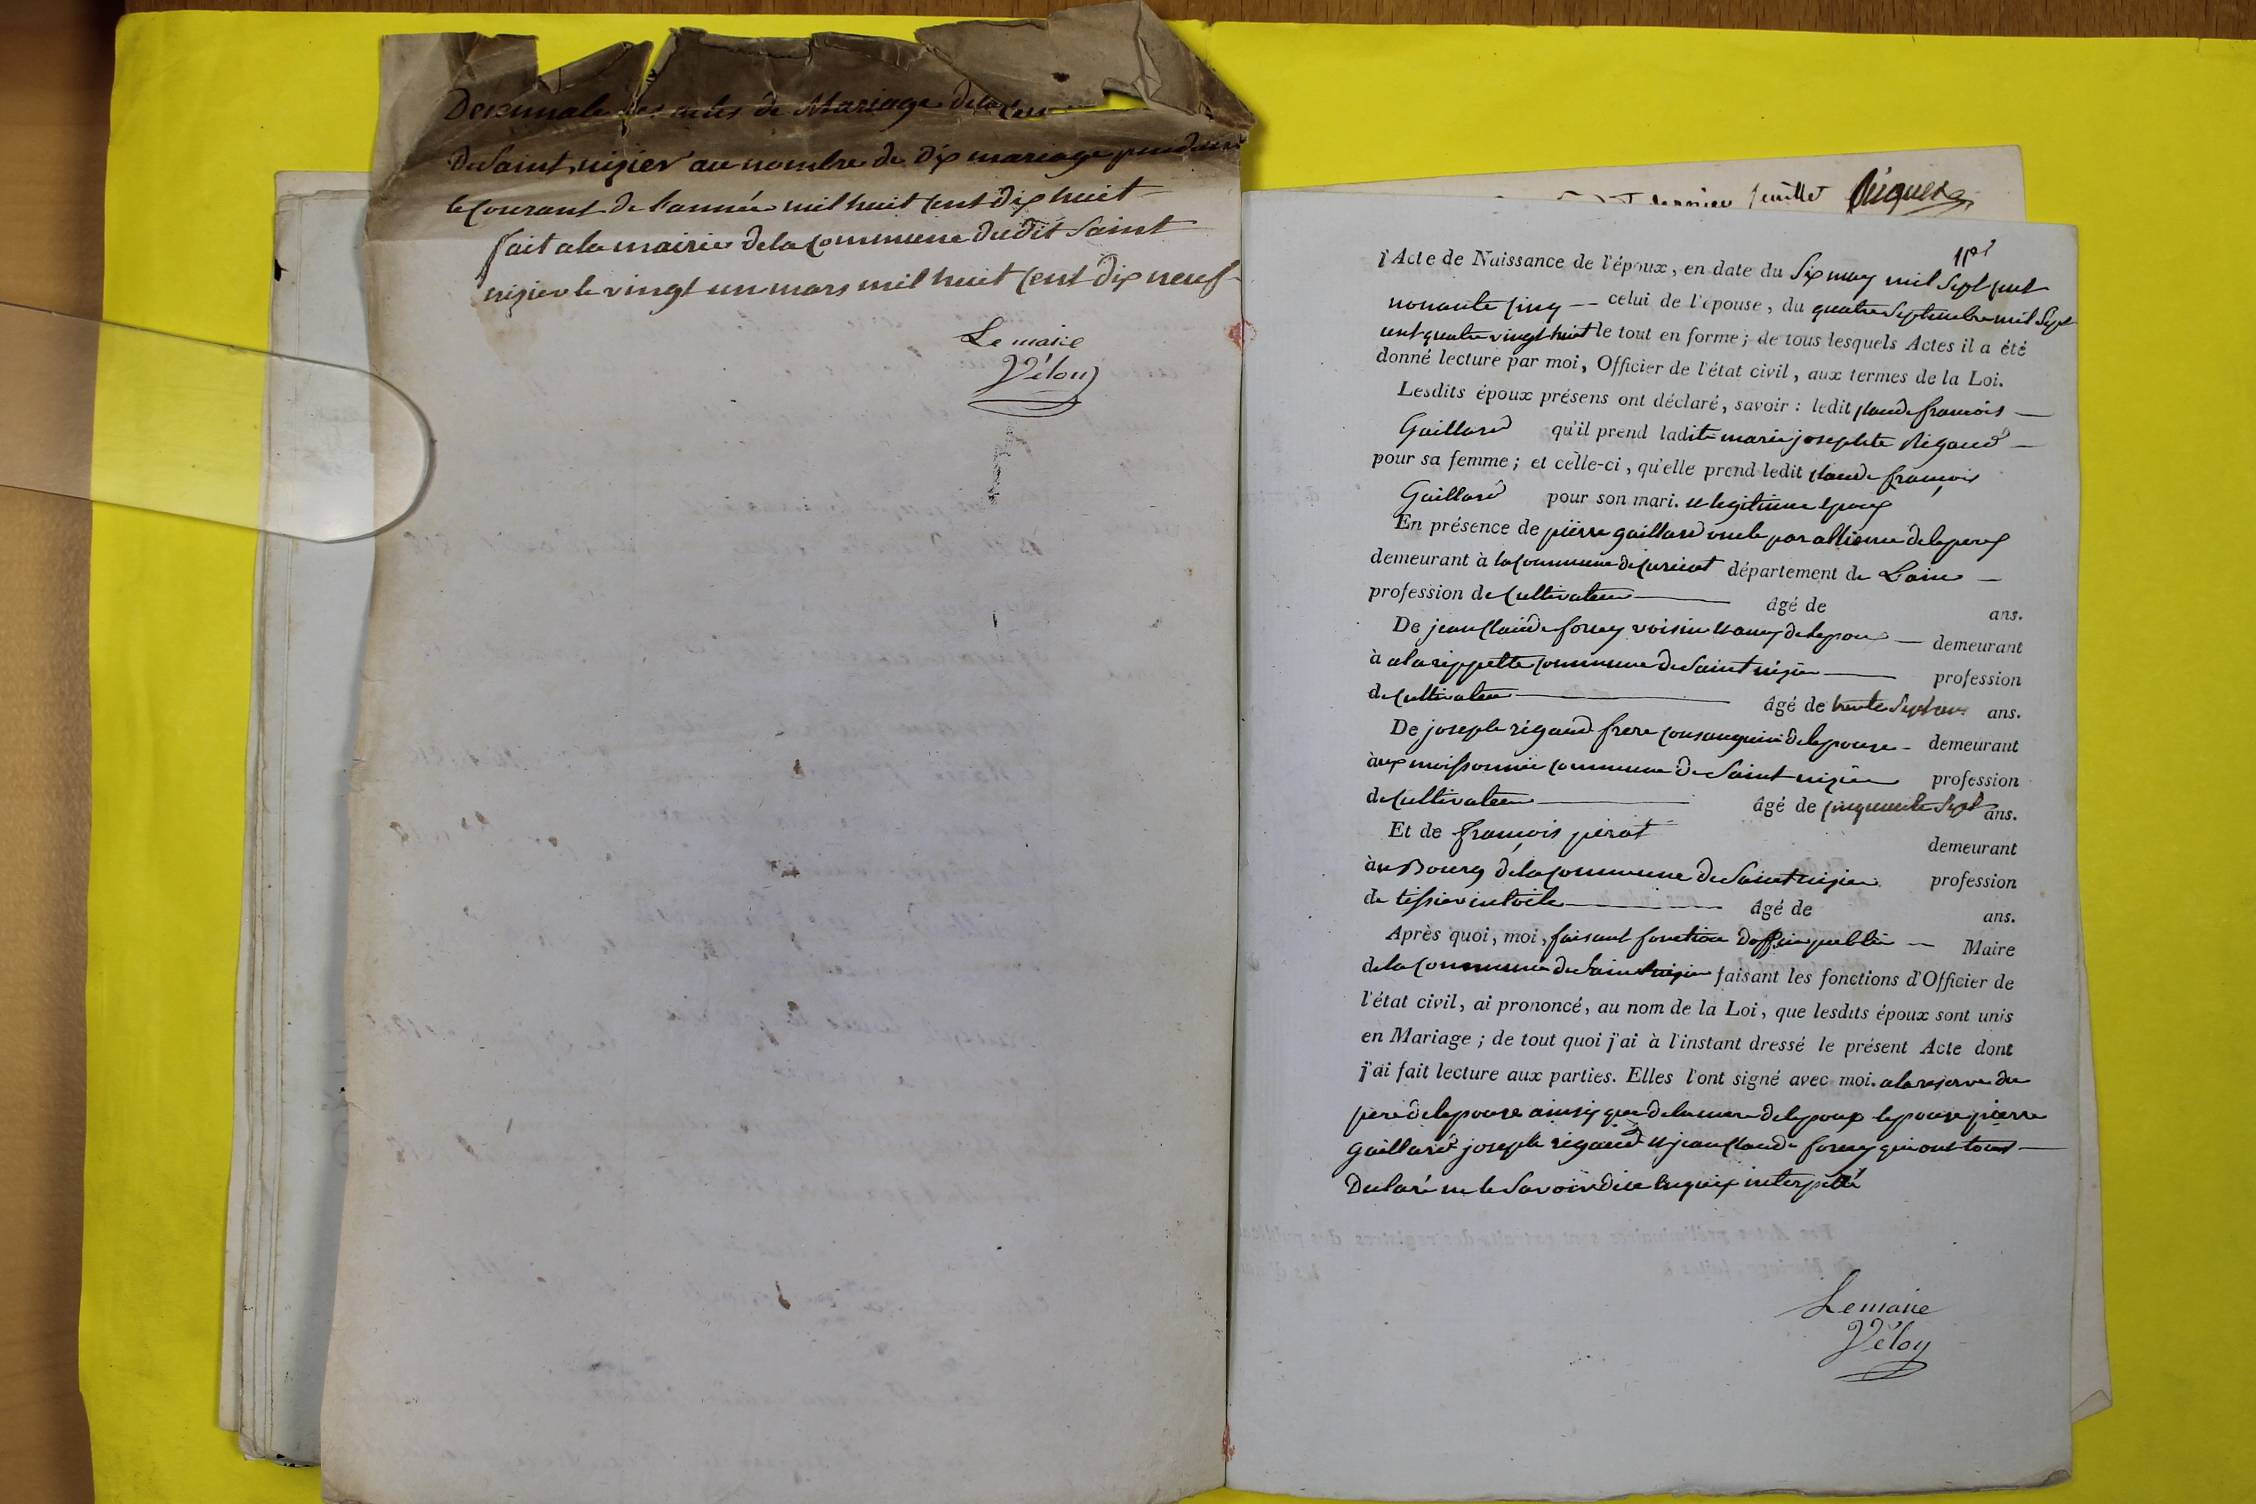 Decennale des actes de Mariage de la Com
De Saint nizier au nombre de Dix mariage pendant
le Courant de l'année mil huit Cent Dix huit
fait a la mairie de la Commune dudit Saint
nizier le vingt un mars mil huit Cent dix neuf
Le maire
Véloy
dernier feuillet
l'Acte de Naissance de l'époux, en date du Six may mil Sept Cent
nonante Cinq — celui de l'épouse, du quatre Septembre mil Sept
Cent quatre vingt huit le tout en forme ; de tous lesquels Actes il a été
donné lecture par moi, Officier de l'état civil, aux termes de la Loi.
Lesdits époux présens ont déclaré, savoir : ledit Claude françois —
Gaillard qu'il prend ladite marie josephte Rigaud —
pour sa femme ; et celle-ci, qu'elle prend ledit Claude françois
Gaillard pour son mari. et legitime Epoux
En présence de pierre gaillard oncle par alliance de lepoux
demeurant à la Commune de Curciat département de Lain —
profession de Cultivateur — âgé de ans.
De jean Claude forey voisin et amy de lepoux — demeurant
à a la rippette Commune de Saint nizier — profession
de Cultivateur — âgé de trente Sept ans ans.
De joseph rigaud frere Consanguin de lepouse - demeurant
à aux moissonnier Commune de Saint nizier profession
de Cultivateur — âgé de Cinquante Sept ans.
Et de françois perat demeurant
à au Bourg de la Commune de Saint nizier profession
de tissier en toile — âgé de ans.
Après quoi, moi, faisant fonction dofficier public — Maire
de la Commune de Saint nizier faisant les fonctions d'Officier de
l'état civil, ai prononcé, au nom de la Loi, que lesdits époux sont unis
en Mariage ; de tout quoi j'ai à l'instant dressé le présent Acte dont
j'ai fait lecture aux parties. Elles l'ont signé avec moi. a la reserve du
pere de lepouse ainsy que de la mere de lepoux lepouse pierre
Gaillard joseph rigaud et jean Claude forey qui ont tous —
Declaré ne le Savoir de ce enquix interpellé
Le maire
Véloy